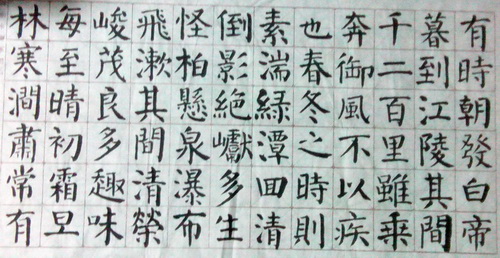 有時朝發白帝
暮到江陵其間
千二百里雖乘
奔御風不以疾
也春冬之時則
素湍綠潭回清
倒影絕巘多生
怪柏懸泉瀑布
飛漱其間清榮
峻茂良多趣味
每至晴初霜旦
林寒澗肅常有